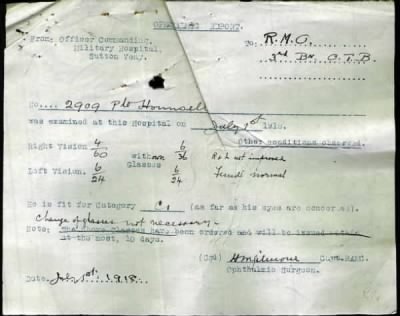 OPHTHALMIC REPORT.
From: Officer Commanding, To: R.M.O.
Military Hospital, 3rd Bn O.T.B.
Sutton Veny.
No. 2909 Pte Hounsell
was examined at this Hospital on July 1st 1918.
Other conditions observed.
Right Vision 4/60 with own 6/36 R & L not improved
Glasses
Left Vision. 6/24 6/24 Fundi normal
He is fit for Category (as far as his eyes are concerned).
Change of glasses not necessary.
Note: The above glasses have been ordered and will be issued within
at the most, 10 days.
(Sgd) Capt. RAMC.
Ophthalmic Surgeon.
Date. July 1st 1918.